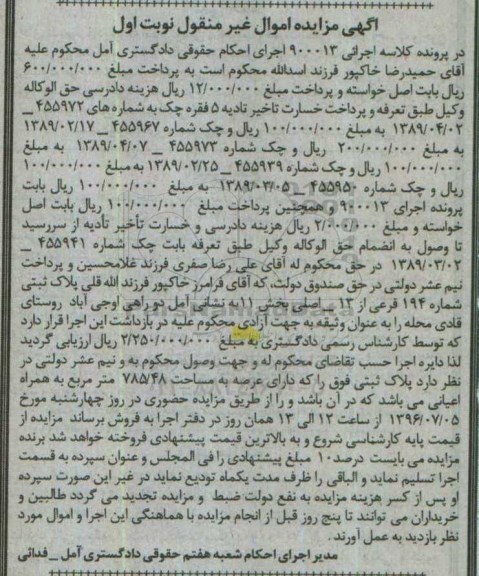 آگهی مزایده اموال غیر منقول نوبت اول
در پرونده کلاسه اجرائی ۹۰۰۰۱۳ اجرای احکام حقوقی دادگستری آمل محکوم علیه
آقای حمیدرضا خاکپور فرزند اسدالله محکوم است به پرداخت مبلغ ۶۰۰/۰۰۰/۰۰۰
ریال بابت اصل خواسته و پرداخت مبلغ ۱۲/۰۰۰/۰۰۰ ریال هزینه دادرسی حق الوکاله
وکیل طبق تعرفه و پرداخت خسارت تاخیر تادیه ۵ فقره چک به شماره های ۴۵۵۹۷۲ _
۱۳۸۹/۰۴/۰۲ به مبلغ ۱۰۰/۰۰۰/۰۰۰ ریال و چک شماره ۴۵۵۹۶۷ _ ۱۳۸۹/۰۲/۱۷
به مبلغ ۲۰۰/۰۰۰/۰۰۰ ریال و چک شماره ۴۵۵۹۷۳ _ ۱۳۸۹/۰۴/۰۷ به مبلغ
۱۰۰/۰۰۰/۰۰۰ ریال و چک شماره ۴۵۵۹۳۹ _ ۱۳۸۹/۰۲/۲۵ به مبلغ ۱۰۰/۰۰۰/۰۰۰
ریال و چک شماره ۴۵۵۹۵۰ _ ۱۳۸۹/۰۳/۰۵ به مبلغ ۱۰۰/۰۰۰/۰۰۰ ریال بابت
پرونده اجرای ۹۰۰۰۱۳ و همچنین پرداخت مبلغ ۱۰۰/۰۰۰/۰۰۰ ریال بابت اصل
خواسته و مبلغ ۲/۰۰۰/۰۰۰ ریال هزینه دادرسی و خسارت تأخیر تأدیه از سررسید
تا وصول به انضمام حق الوکاله وکیل طبق تعرفه بابت چک شماره ۴۵۵۹۴۱ _
۱۳۸۹/۰۳/۰۲ در حق محکوم له آقای علی رضا صفری فرزند غلامحسین و پرداخت
نیم عشر دولتی در حق صندوق دولت، که آقای فرامرز خاکپور فرزند الله قلی پلاک ثبتی
شماره ۱۹۴ فرعی از ۱۳ _ اصلی بخش ۱۱ به نشانی آمل دو راهی اوجی آباد روستای
قادی محله را به عنوان وثیقه به جهت آزادی محکوم علیه در بازداشت این اجرا قرار دارد
که توسط کارشناس رسمی دادگستری به مبلغ ۲/۲۵۰/۰۰۰/۰۰۰ ریال ارزیابی گردید
لذا دایره اجرا حسب تقاضای محکوم له و جهت وصول محکوم به و نیم عشر دولتی در
نظر دارد پلاک ثبتی فوق را که دارای عرصه به مساحت ۷۸۵/۴۸ متر مربع به همراه
اعیانی می باشد که در آن باشد و را از طریق مزایده حضوری در روز چهارشنبه مورخ
۱۳۹۶/۰۷/۰۵ از ساعت ۱۲ الی ۱۳ همان روز در دفتر اجرا به فروش برساند مزایده از
قیمت پایه کارشناسی شروع و به بالاترین قیمت پیشنهادی فروخته خواهد شد برنده
مزایده می بایست درصد۱۰ مبلغ پیشنهادی را فی المجلس و عنوان سپرده به قسمت
اجرا تسلیم نماید و الباقی را ظرف مدت یکماه تودیع نماید در غیر این صورت سپرده
او پس از کسر هزینه مزایده به نفع دولت ضبط و مزایده تجدید می گردد طالبین و
خریداران می توانند تا پنج روز قبل از انجام مزایده با هماهنگی این اجرا و اموال مورد
نظر بازدید به عمل آورند.
مدیر اجرای احکام شعبه هفتم حقوقی دادگستری آمل _ فدائی